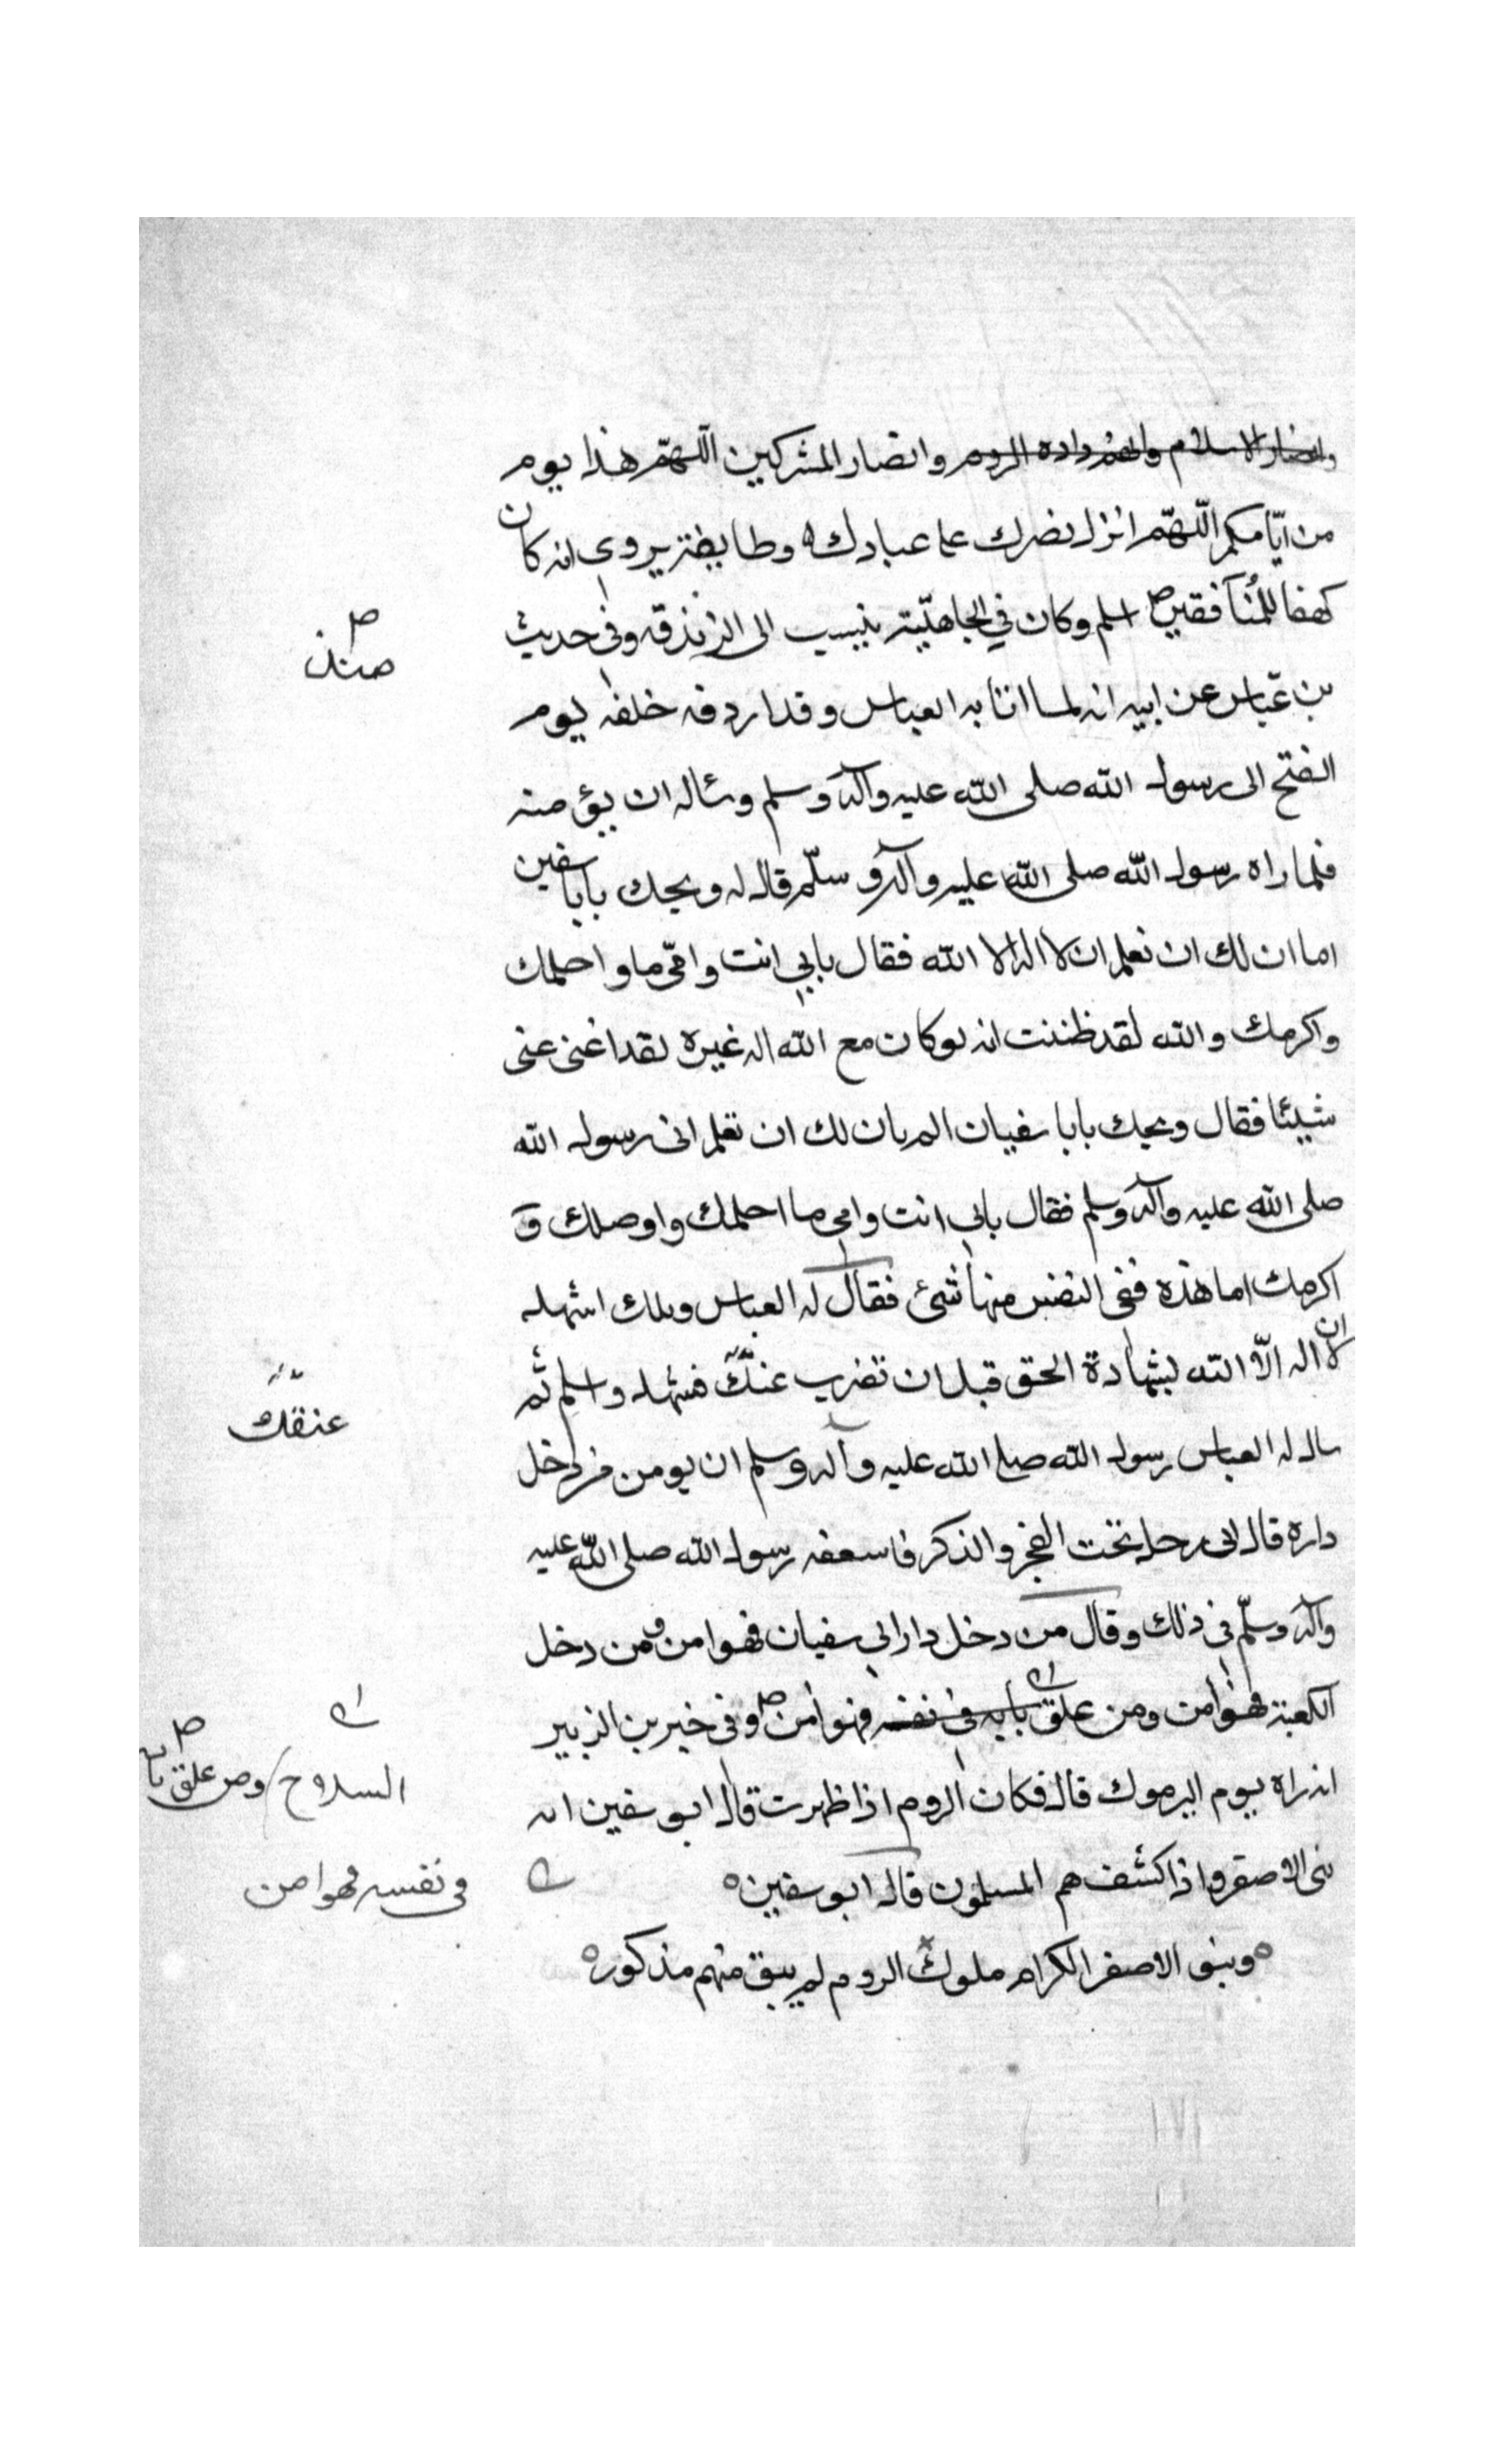 وانصار الاسلام وانهم دادة الروم وانصار المشركين اللهم هذا يوم
من ايّامكم اللّهمّ انزل نصرك على عبادك وطايفة يروى انه كان
كهفا للمنافقين اسلم وكان في الجاهليّة ينسب الى الزندقة وفى حديث
منذ
بن عبّاس عن ابيه انه لما اتا به العباس وقد اردفه خلفه يوم
الفتح الى رسول الله صلى الله عليه وآله وسلم وسئاله ان يؤمنه
فلما راه رسول الله صلى الله عليه وآله وسلّم قال له ويحك يابا سفين
اما ان لك ان تعلم ان لا اله الا الله فقال بابي انت وامّي ما واحلمك
واكرمك والله لقد ظننت انه لو كان مع الله اله غيره لقد اغنى عنى
شيئا فقال ويحك يابا سفيان الم يان لك ان تعلم انى رسول الله
صلى الله عليه وآله وسلم فقال بابى انت وامى ما احلمك واوصلك و
اكرمك اما هذه ففى النفس منها شئ فقال له العباس ويلك اشهد
ان لا اله الّا الله بشهادة الحق قبل ان تضرب عنك فشهد واسلم ثم
عنقك
سال له العباس رسول الله صلى الله عليه وآله وسلم ان يومن من دخل
داره قال انى رجل تحت الفخر والذكر فاسعفه رسول الله صلى الله عليه
وآله وسلّم فى ذلك وقال من دخل دار ابي سفيان فهو امن ومن دخل
الكعبة فهو امن ومن علق بابه فى نفسه فهو امن وفى خبر بن الزبير
السلاح ومن علق با
انه راه يوم اليرموك قال فكان الروم اذا ظهرت قال ابو سفين ايه
بنى الاصفر واذا كشف هم المسلمون قال ابو سفين
فى نفسه فهو امن
وبنو الاصفر الكرام ملوك الروم لم يبق منهم مذكور